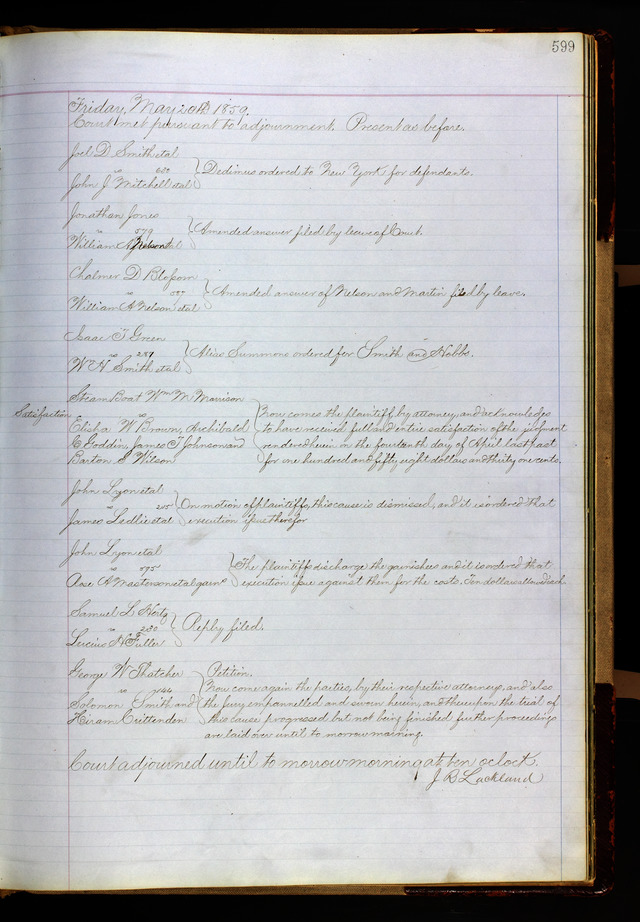 599
Friday May 20th 1859
Court met pursuant to adjournment. Present as before.
Joel D Smith et al
vs 680
John J Mitchell et al
Dedimus ordered to New York for defendants.
Jonathan Jones
vs 579
William A Nelson et al
Amended answer filed by leave of Court.
Chalmer D Blossom
vs
William A Nelson et al
Amended answer of Nelson and Martin filed by leave.
Isaac T Green
vs 257
W H Smith et al
Alias Summons ordered for Smith and Hobbs.
Satisfaction
Steam Boat Wm M Morrison
vs
Elisha W Brown, Archibald
C Goddin, James T Johnson and
Barton S Wilson
Now comes the plaintiff by attorney, and acknowledges
to have received full and entire satisfaction of the judgment
rendered herein on the fourteenth day of April last past
for one hundred and fifty eight dollars and thirty one cents.
John Lyon et al
vs
James Ledlie et al
On motion of plaintiffs, this cause is dismissed, and it is ordered that
execution issue therefor
John Lyon et al
vs 595
A Masterson et al garns
The plaintiffs discharge the garnishees and it is ordered that
execution issue against them for the costs. Ten dollars allowed each.
Samuel L Hertz
vs 230
Lucius H Fuller
Reply filed.
George W Thatcher
vs 144
Solomon Smith and
Hiram Crittenden
Petition.
Now come again the parties, by their respective attorneys, and also
the jury empannelled and sworn herein, and thereupon the trial of
this cause progressed but not being finished further proceedings
are laid over until to morrow morning.
Court adjourned until to morrow morning at ten oclock.
J R Lackland